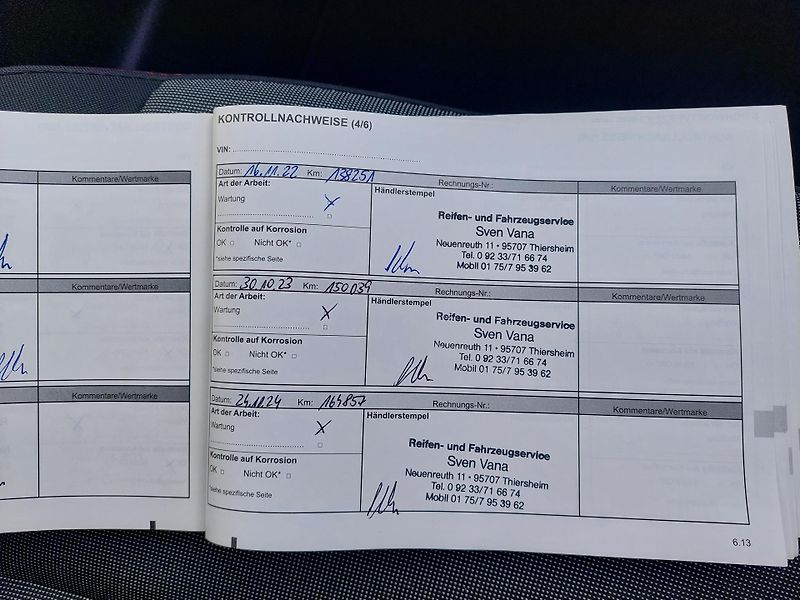 Kommentare/Wertmarke
Kommentare/Wertmarke
Kommentare/Wertmarke
KONTROLLNACHWEISE (4/6)
VIN:
Datum: 16.11.22 Km: 138251 Rechnungs-Nr.: Kommentare/Wertmarke
Art der Arbeit: Händlerstempel
Wartung X
Reifen- und Fahrzeugservice
Sven Vana
Neuenreuth 11 • 95707 Thiersheim
Tel. 0 92 33/71 66 74
Mobil 01 75/7 95 39 62
Kontrolle auf Korrosion
OK □ Nicht OK* □
*siehe spezifische Seite
Datum: 30.10.23 Km: 150039 Rechnungs-Nr.: Kommentare/Wertmarke
Art der Arbeit: Händlerstempel
Wartung X
Reifen- und Fahrzeugservice
Sven Vana
Neuenreuth 11 • 95707 Thiersheim
Tel. 0 92 33/71 66 74
Mobil 01 75/7 95 39 62
Kontrolle auf Korrosion
OK □ Nicht OK* □
*siehe spezifische Seite
Datum: 24.11.24 Km: 164857 Rechnungs-Nr.: Kommentare/Wertmarke
Art der Arbeit: Händlerstempel
Wartung X
Reifen- und Fahrzeugservice
Sven Vana
Neuenreuth 11 • 95707 Thiersheim
Tel. 0 92 33/71 66 74
Mobil 01 75/7 95 39 62
Kontrolle auf Korrosion
OK □ Nicht OK* □
*siehe spezifische Seite
6.13